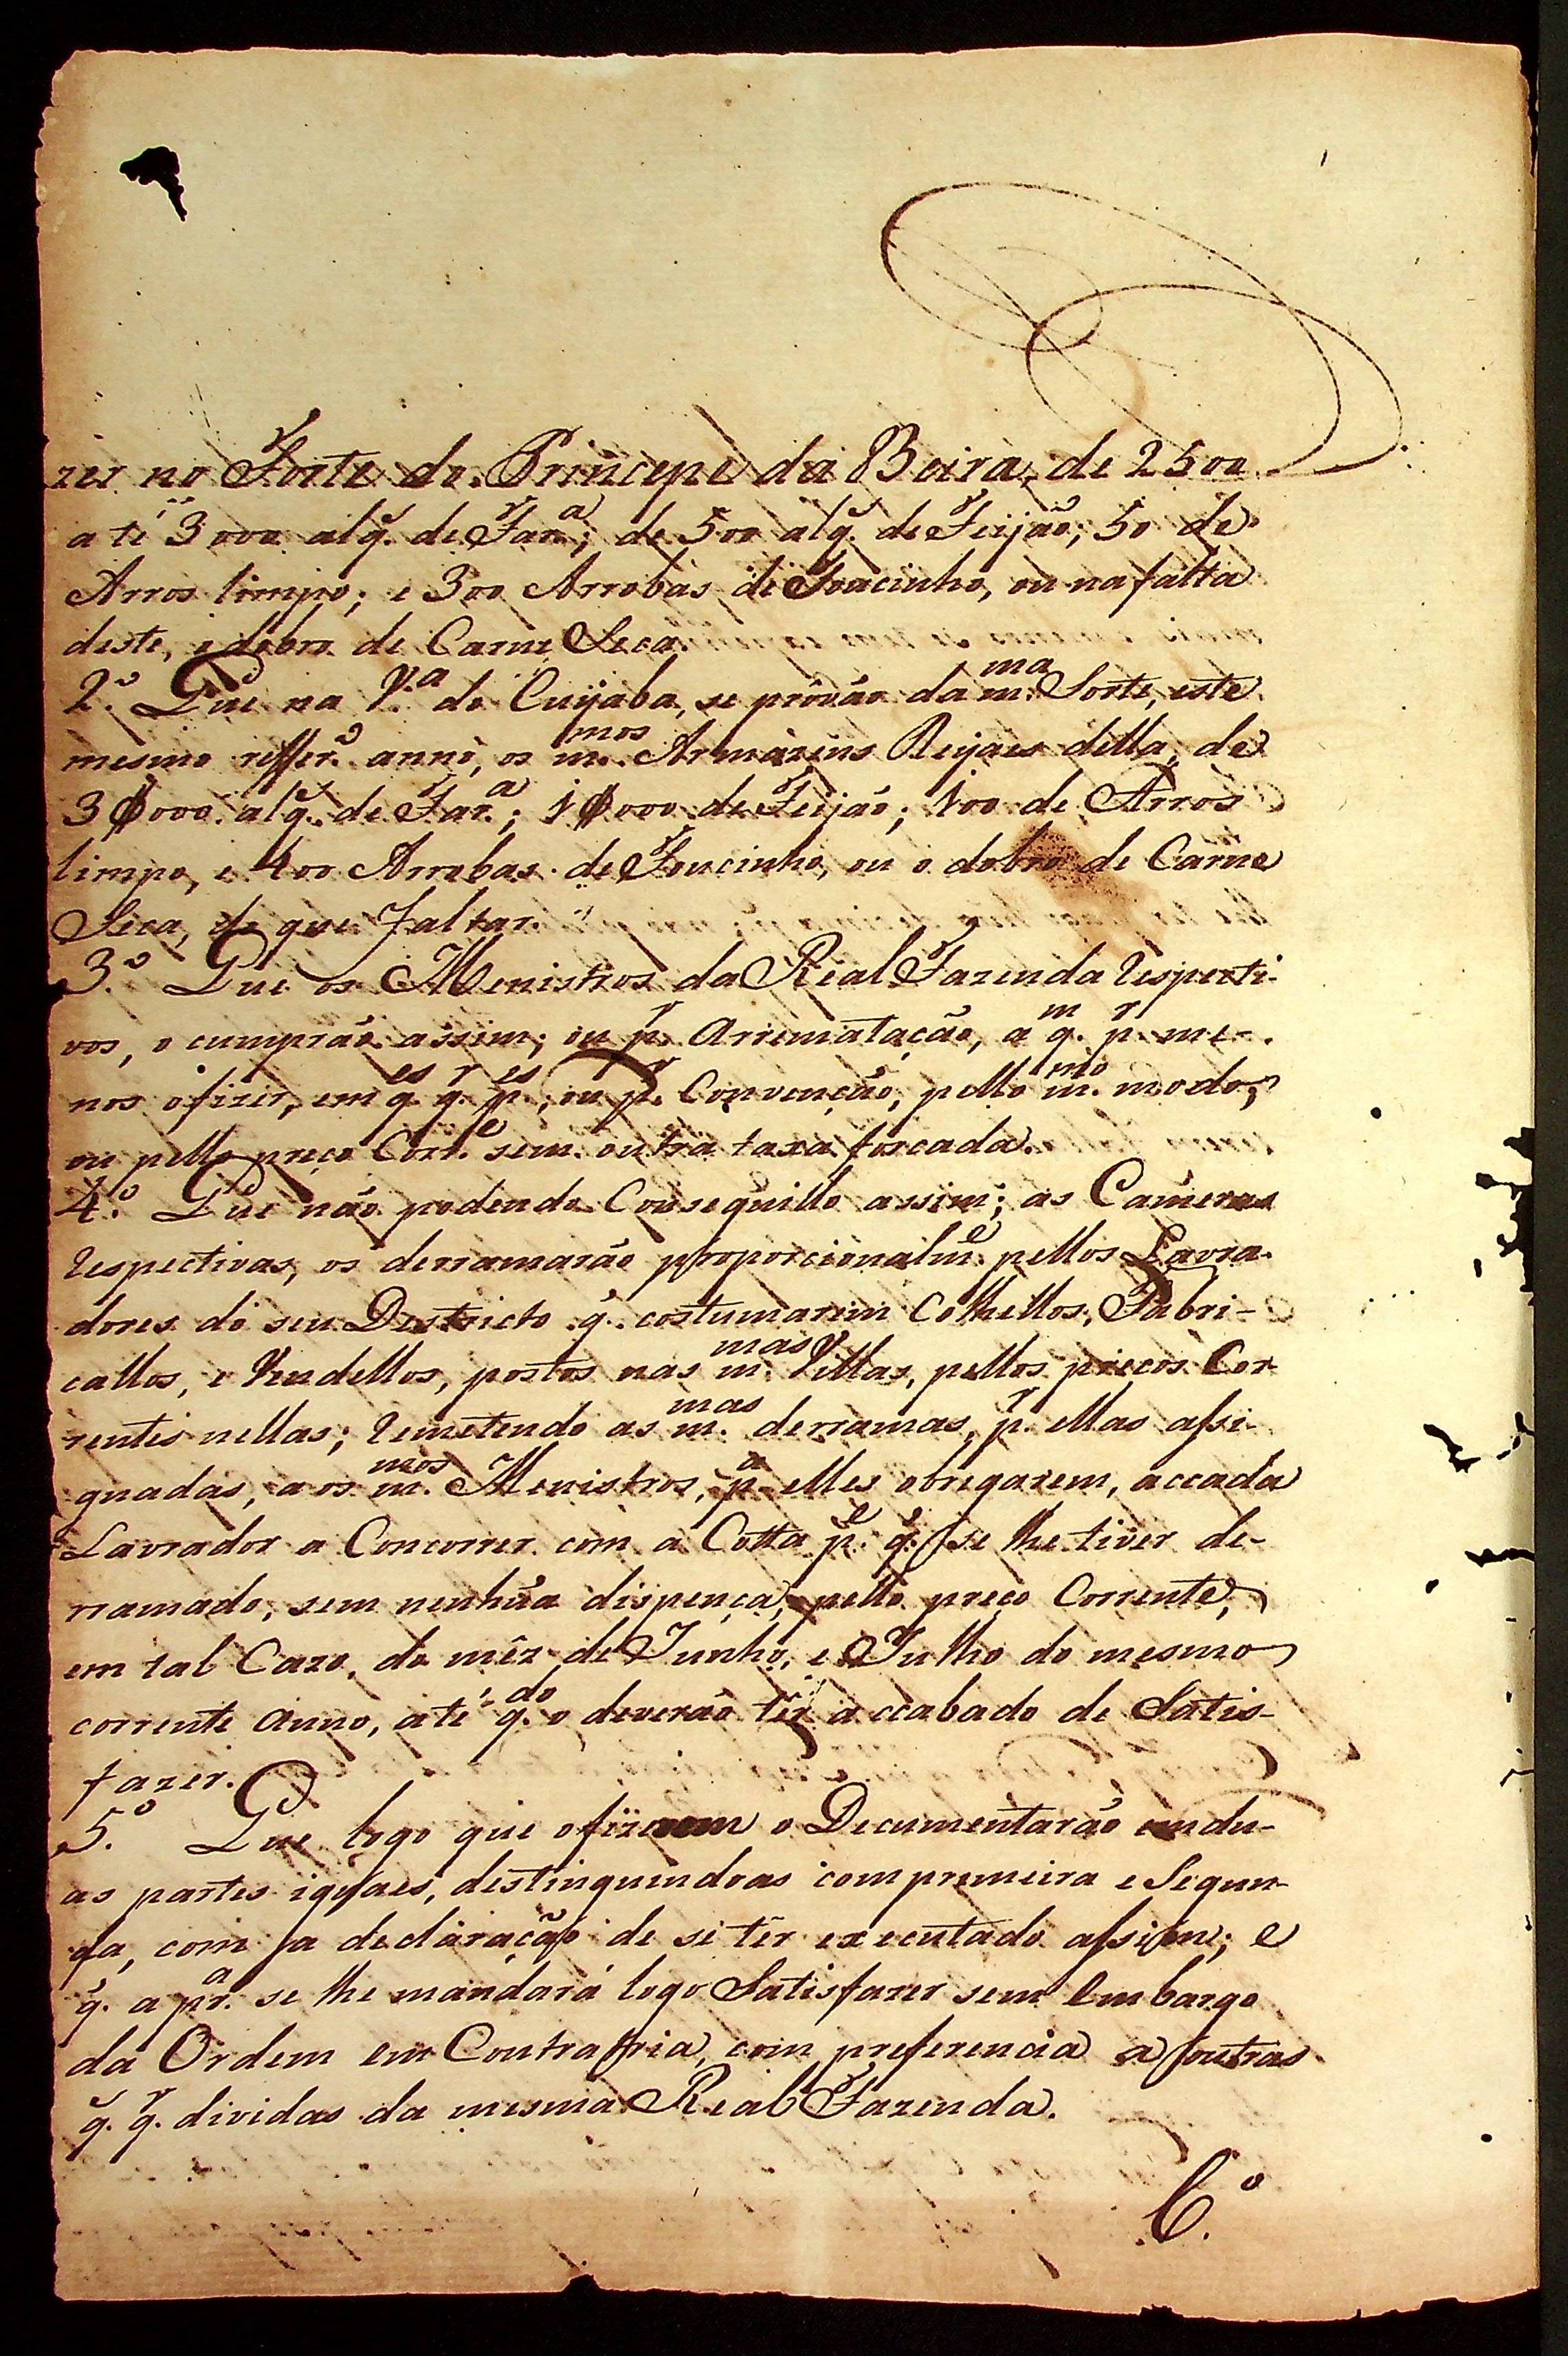 zer no Forte do Principe da Beira, de 2500
até 3000 alq̃. de Far.ª; de 500 alq̃. de Feijão; 50 de
Arros limpo; e 300 Arrobas de Toucinho, ou na falta
deste, o dobro de Carne Seca.
2.º Que na V.ª do Cuyaba, se provão da m.ma Sorte, este
mesmo reffer.º anno, os m.mos Armazens Reyaes della, de
3$000 alq̃. de Far.ª; 1$000 de Feijão; 100 de Arros
limpo, e 400 Arrobas de Toucinho, ou o dobro de Carne
Seca, do que faltar.
3.º Que os Menistros da Real Fazenda respecti-
vos, o cumprão assim; ou p.r Arrematação, a q.m p.r me-
nos ofizer, em q.es q.r p.es, ou p.r Convenção, pello m.mo modo,
ou pello preço Corr.e sem outra taxa forcada.
4.º Que não podendo Conseguillo assim; as Cameras
respectivas, os derramarão proporcionalm.e pellos Lavra-
dores do seu Destricto q̃. costumarem Colhellos, Fabri-
callos, e Vendellos, postos nas m.mas Villas, pellos preços Cor-
rentes nellas; remetendo as m.mas derramas, p.r ellas assi-
gnadas, aos m.mos Menistros, p.ª elles obregarem, accada
Lavrador a Concorrer com a Cotta p.e q̃. se lhe tiver de-
rramado, sem nenhũa dispença, pello preço Corrente,
em tal Cazo, do mêz de Junho, e Julho do mesmo
corrente anno, até q.do o deverão têr accabado de Satis-
fazer.
5.º Que logo que ofizerem o Decumentarão em du-
as partes iguaes, destinguindoas com premeira e Segun-
da, com a declaração de se têr executado assim; e
q̃. a pr.ª se lhe mandará logo Satisfazer sem embargo
da Ordem em Contraria, com preferencia a outras
q̃. q.r dividas da mesma Real Fazenda.
6.º